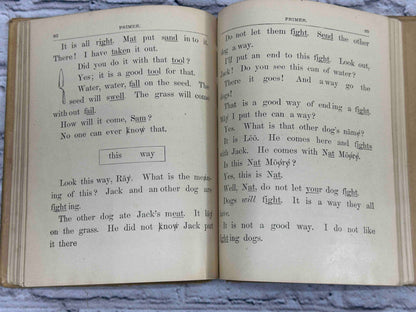 PRIMER.
It is all right. Mat put sand in to it.
There! I have taken it out.
Did you do it with that tool?
Yes; it is a good tool for that.
Water, water, fall on the seed. The
seed will swell. The grass will come
with out fail.
How will it come, Sam?
No one can ever know that.
this way
Look this way, Ray. What is the mean-
ing of this? Jack and an other dog are
fight ing.
The other dog ate Jack's meat. It lay
on the grass. He did not know Jack put
it there
PRIMER.
Do not let them fight. Send the other
dog a way.
I'll put an end to this fight. Look out,
Jack! Do you see this can of water?
There it goes! And a way go the
dogs!
That is a good way of end ing a fight.
May I put the can a way?
Yes. What is that other dog's name?
It is Lōō. He comes here and fights
with Jack. He comes with Nat Moore.
Is this Nat Moore?
Yes, this is Nat.
Well, Nat, do not let your dog fight.
Dogs will fight. It is a way they all
have.
It is not a good way. I do not like
fight ing dogs.